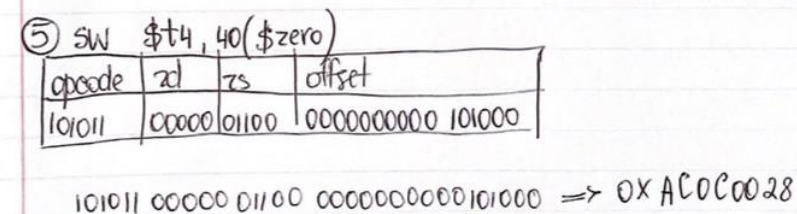 ⑤ sw $t4, 40($zero)
opcode rd rs offset
101011 00000 01100 0000000000 101000
101011 00000 01100 0000000000101000 => 0XAC0C0028